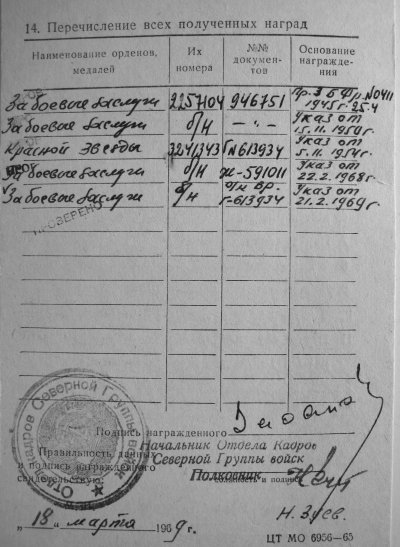 14. Перечисление всех полученных наград
Наименование орденов, медалей
Их номера
№№ документов
Основание награждения
За боевые заслуги 2257104 946751 Пр. 3 БФ №0411 1945г. 25.4
За боевые заслуги б/н -"- Указ от 15.11.1950г.
Красной Звезды 3241343 Г№613934 Указ от 5.11.1954г.
За боевые заслуги б/н Ж-591011 Указ от 22.2.1968г.
За боевые заслуги б/н б/н вр. Г-613934 Указ от 21.2.1969г.
ПРОВЕРЕНО
Отдел кадров Северной Группы войск
Подпись награжденного
Начальник Отдела Кадров
Правильность данных
Северной Группы войск
и подпись награжденного
Полковник
свидетельствую:
должность и подпись
Н. Зуев.
„18" марта 1969г.
ЦТ МО 6956—65